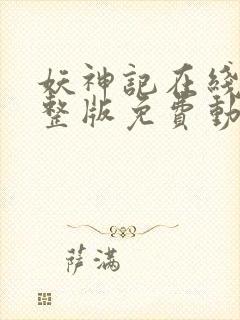 妖神記在綫
整版免費動
萨满